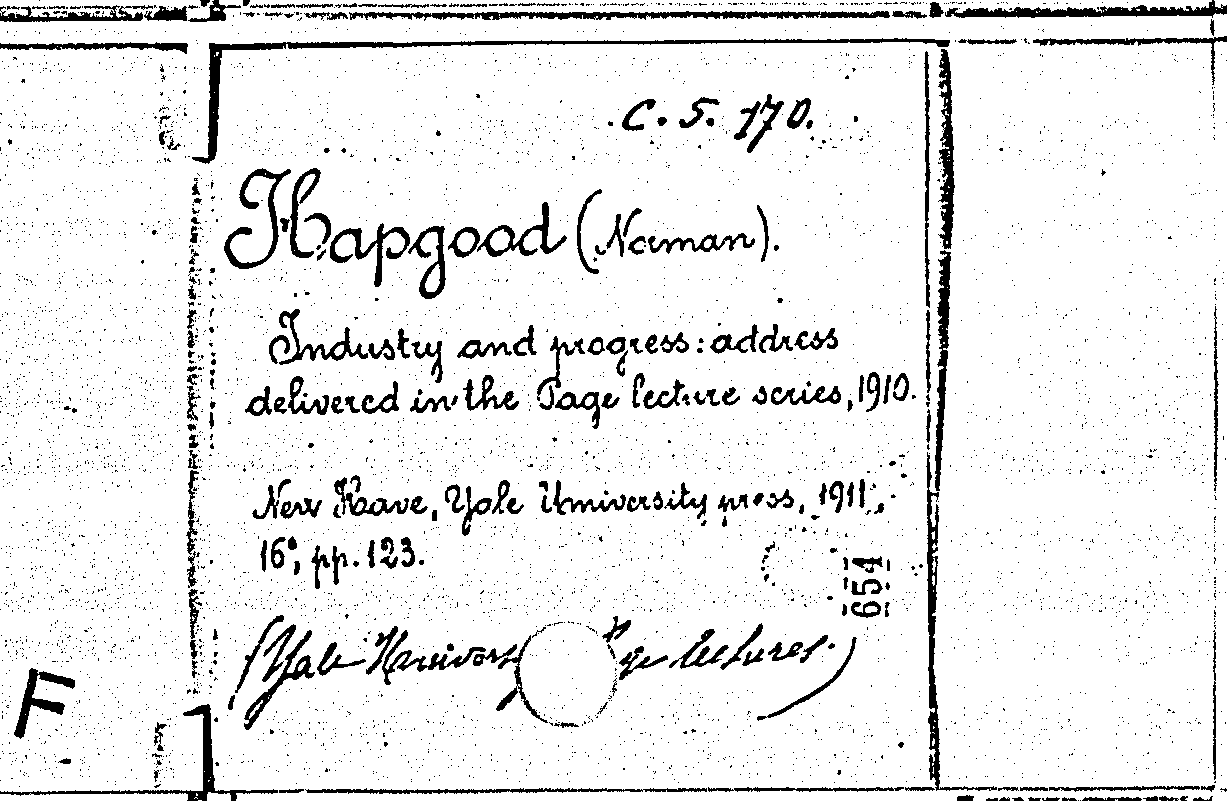 C. 5. 170.
Hapgood (Norman).
Industry and progress: address
delivered in the Page lecture series, 1910.
New Have, Yale University press, 1911,
16°, pp. 123.
654
(Yale lectures.)
F